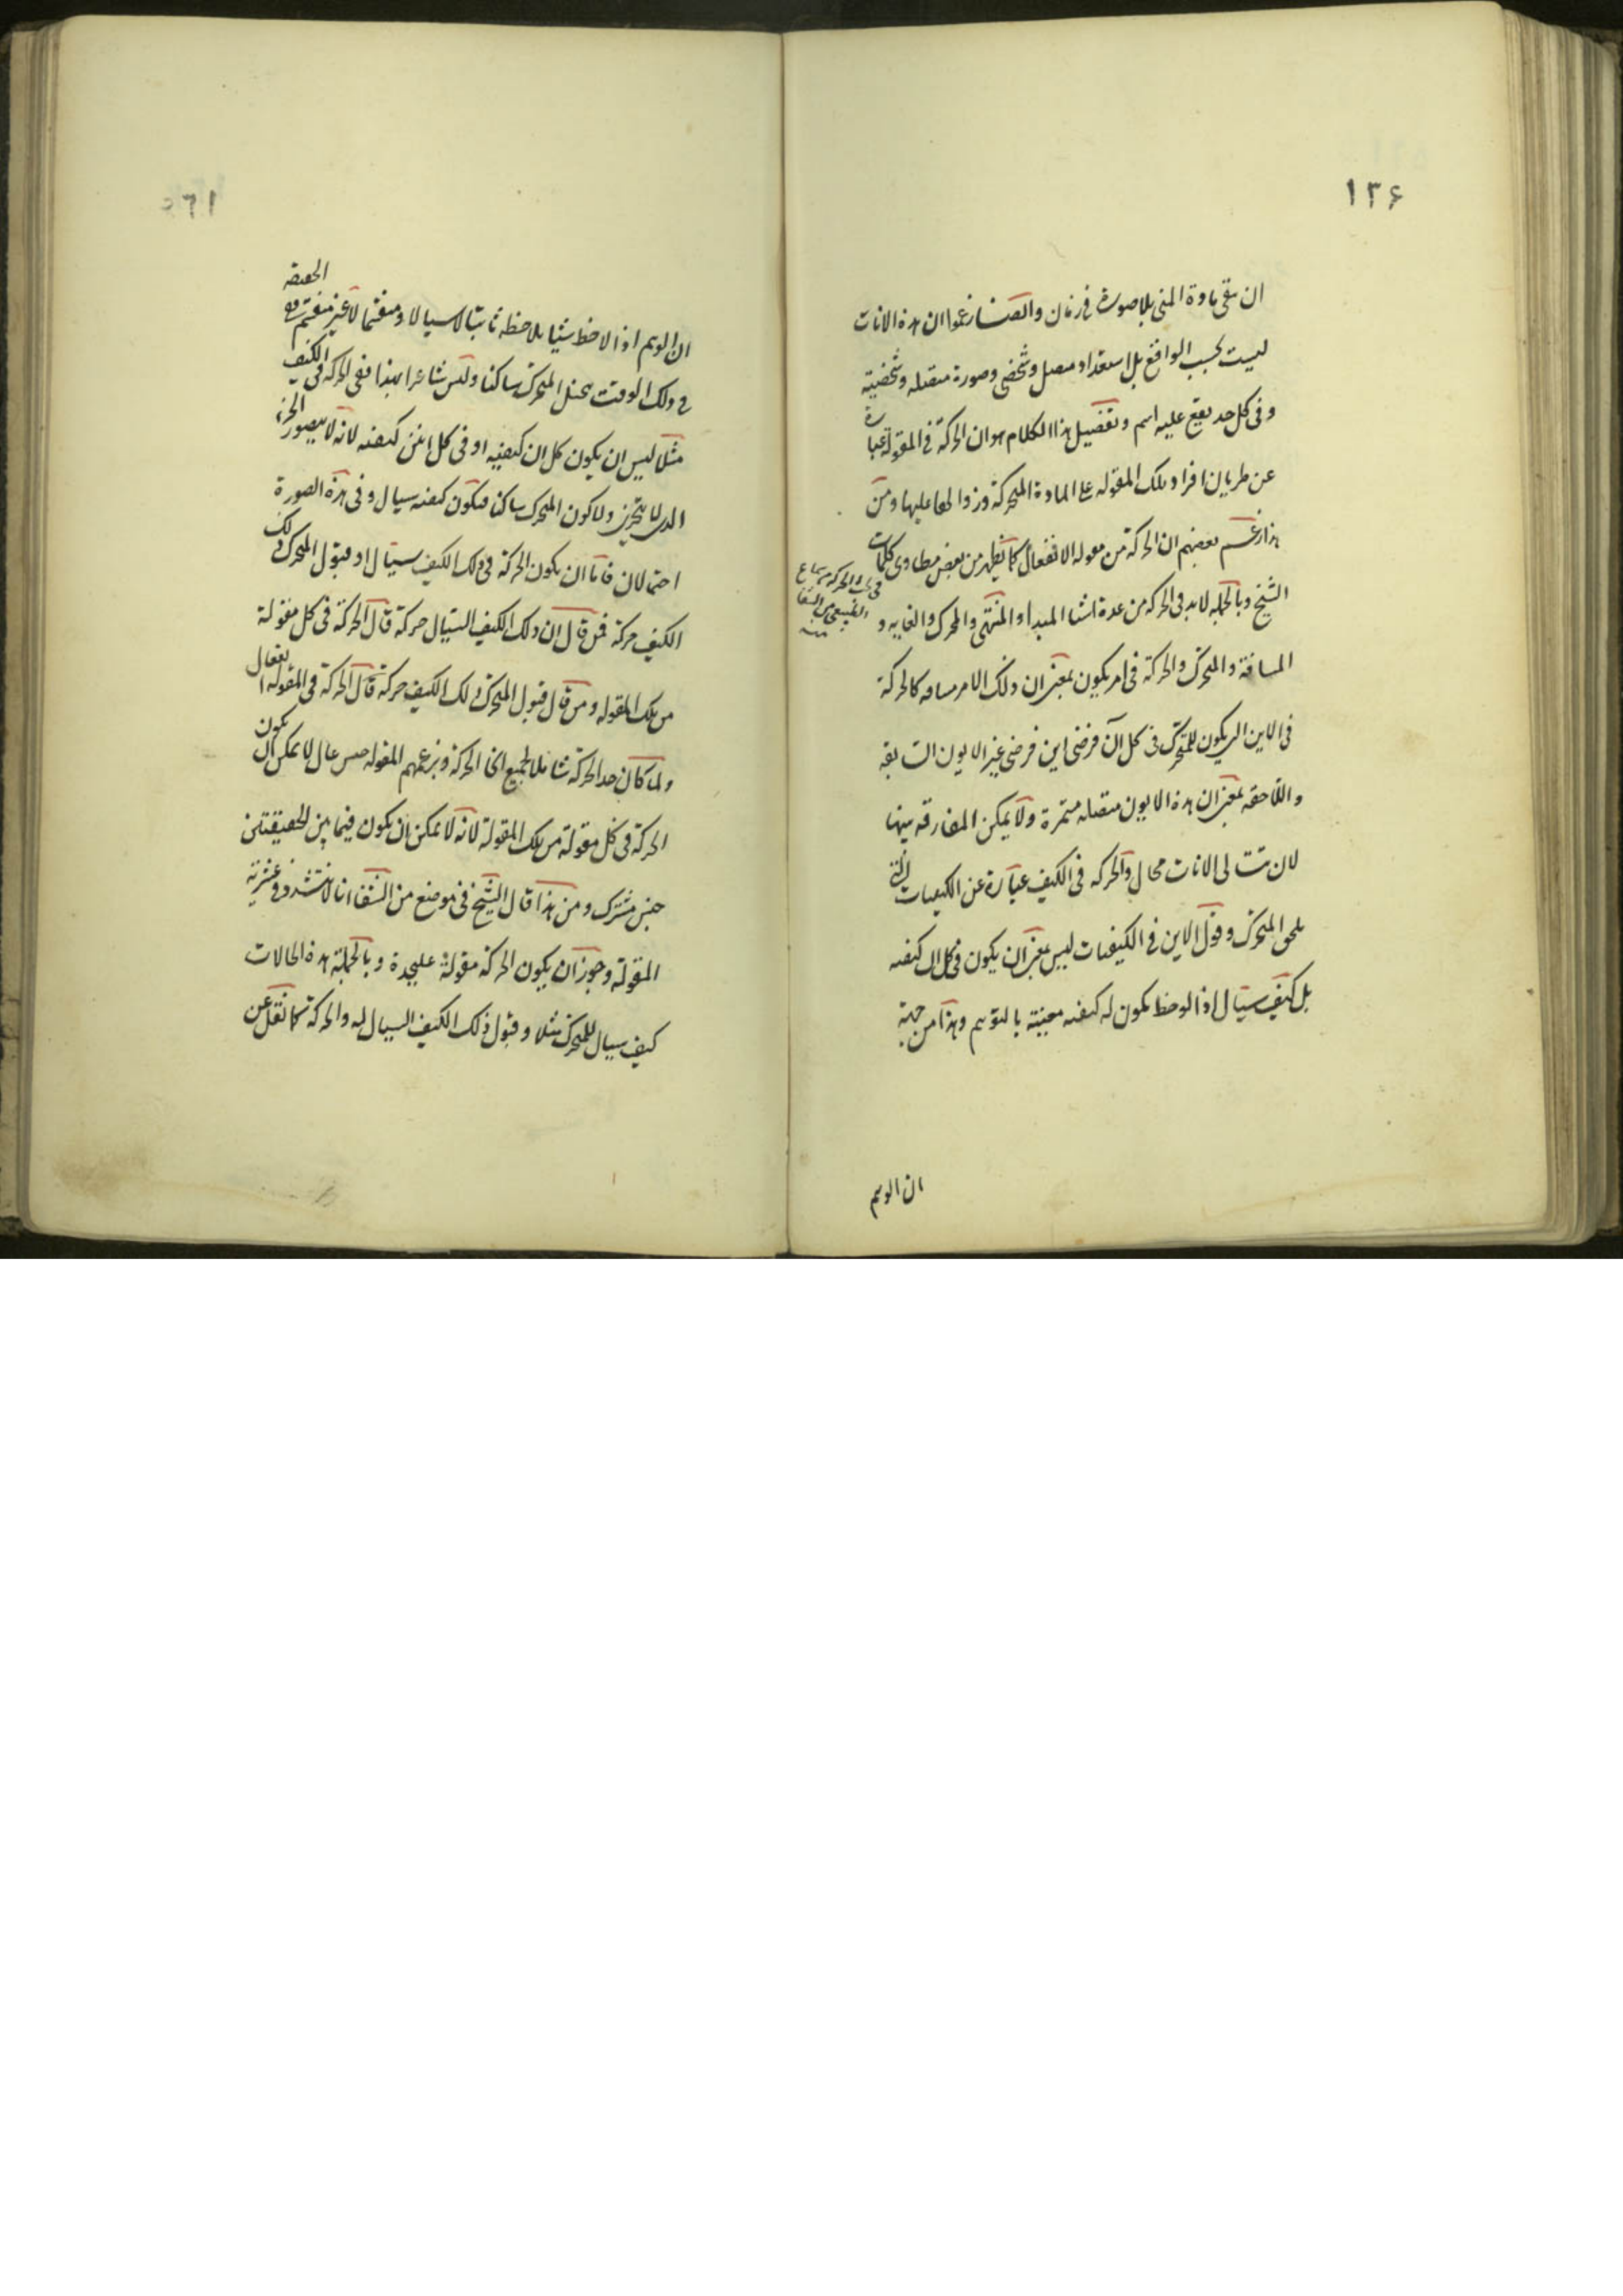 ١٣۶
ان يبقى مادة المنى بلا صورة فى زمان وايضا زعموا ان هذه الانات
ليست بحسب الواقع بل استعداد متصل وشخصى وصورة متصله وشخصيته
وفى كل حد يقع عليه اسم وتفصيل هذا الكلام هو ان الحركة فى المقولة عبارة
عن طريان افراد تلك المقوله على المادة المتحركة وزوالها عليها ومن
هذا زعم بعضهم ان الحركة من مقوله الانفعال كما يظهر من بعض مطاوى كلمات
الشيخ وبالجمله لابد فى الحركه من عدة اشيا المبدأ والمنتهى والمحرك والغايه و
المسافة والمتحرك والحركة فى امر يكون بمعنى ان ذلك الامر مسافه كالحركة
فى الاين اى يكون للمتحرك فى كل آن فرضى اين فرضى غير الايون السابقه
واللاحقه بمعنى ان هذه الايون متصله مستمرة ولا يمكن المفارقه بينها
لان تتالى الانات محال والحركه فى الكيف عبارة عن الكيفيات التى
تلحق المتحرك وقول الاين فى الكيفيات ليس بمعنى ان يكون فى كل ان كيفيه
بل كيف سيال اذا لوحظ يكون له كيفيه معينة بالتوهم وهذا من جهة
فى الحركه من سماع
الطبيعى من الشفا
منه
ان الوهم
ان الوهم اذا لاحظ شيئا يلاحظه ثابتا لا سيالا ومنقسما لا غير منقسم وفى الحقيقه
فى ذلك الوقت يتخيل المتحرك ساكنا وليس شاعرا بهذا ففى الحركه فى الكيف
مثلا ليس ان يكون كل ان كيفيه او فى كل اينين كيفيه لانه لا يتصور الجزء
الذى لا يتجزى ولا كون المتحرك ساكنا فيكون كيفيه سيال وفى هذه الصورة
احتمالان فاما ان يكون الحركة فى ذلك الكيف سيال او قبول المتحرك ذلك
الكيف حركة فمن قال ان ذلك الكيف السيال حركة قال الحركة فى كل مقولة
من تلك المقوله ومن قال قبول المتحرك ذلك الكيف حركة قال الحركة فى المقوله انفعال
ولما كان حد الحركة شاملا لجميع انحا الحركة وبزعمهم المقوله جنس عال لا يمكن ان يكون
الحركة فى كل مقولة من تلك المقولة لانه لا يمكن ان يكون فيما بين الحقيقتين
جنس مشترك ومن هذا قال الشيخ فى موضع من الشفا انا لا نتشدد فى عشرية
المقولة وجوز ان يكون الحركة مقولة عليحدة وبالجملة هذه الحالات
كيف سيال للمتحرك مثلا وقبول ذلك الكيف السيال له والحركة كما نقل عن